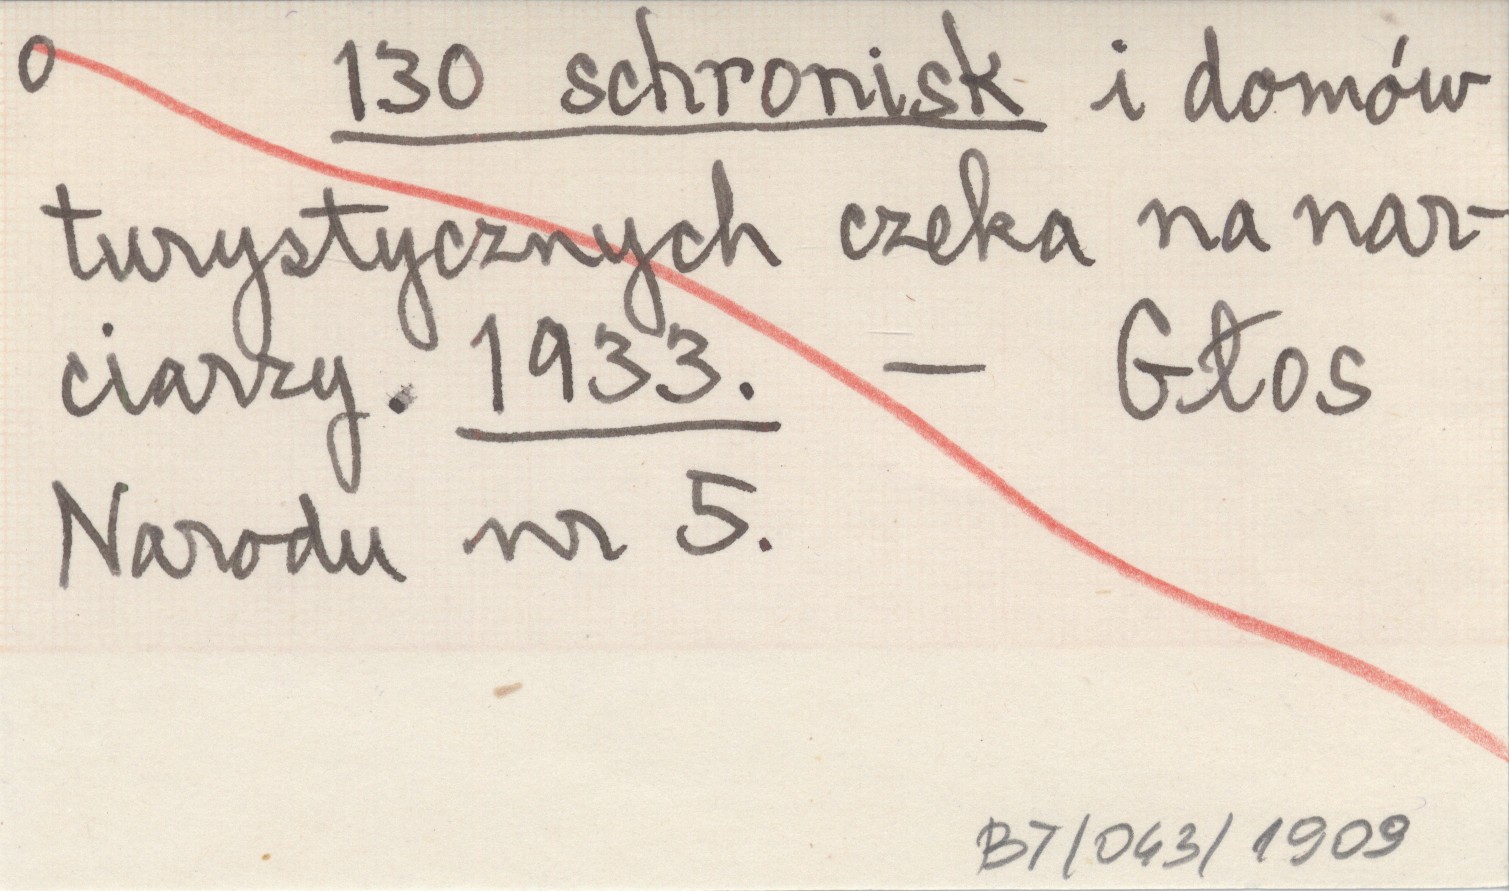 0 130 schronisk i domów
turystycznych czeka na nar-
ciarzy. 1933. — Głos
Narodu nr 5.
BT/043/1909